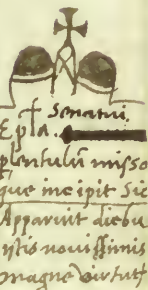 senatui
Epła.
plentulũ misso
que incipit sic
Apparuit diebu
istis nouissimis
magne virtuti